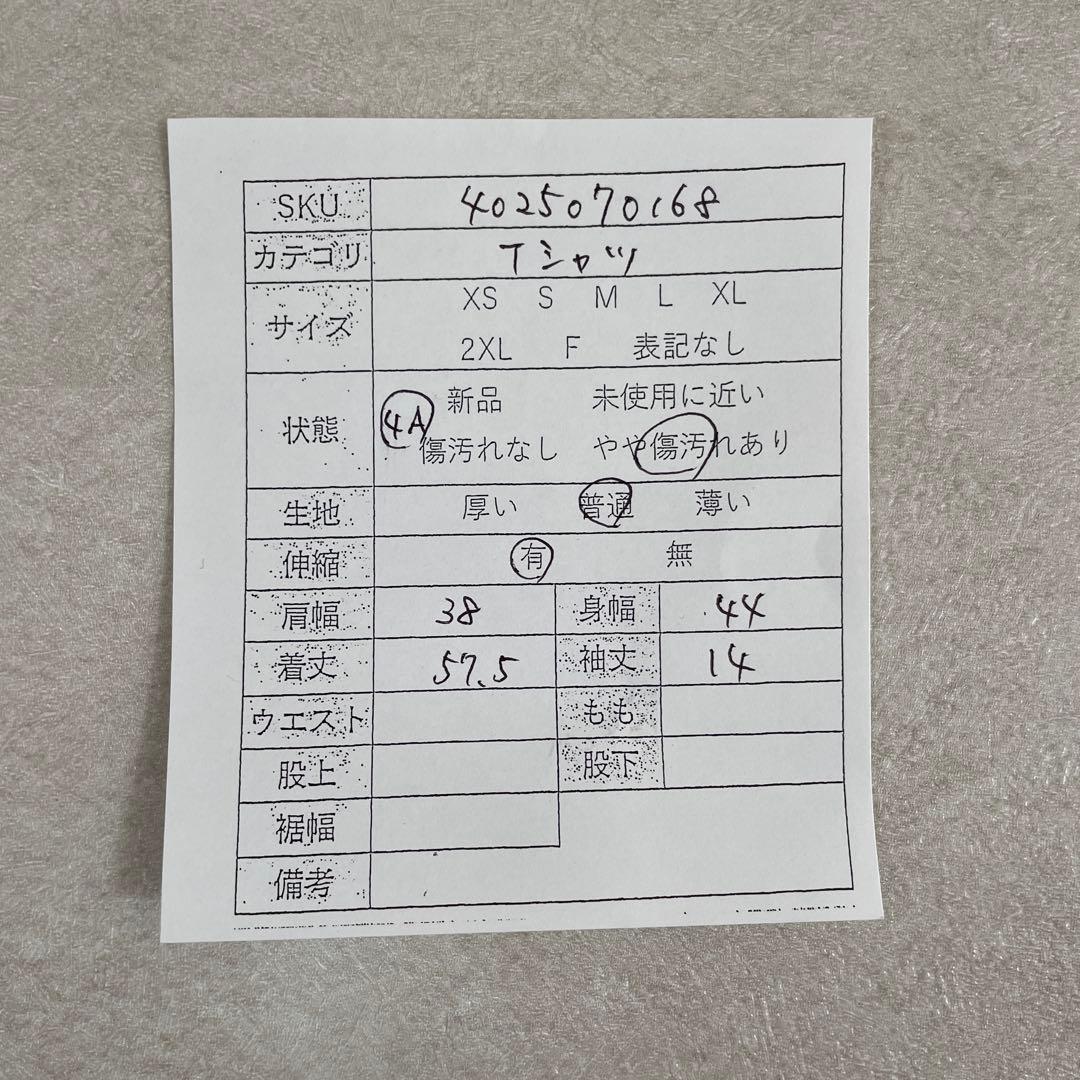 SKU 4025070168
カテゴリ Tシャツ
サイズ XS S M L XL
2XL F 表記なし
状態 4A 新品 未使用に近い
傷汚れなし やや傷汚れあり
生地 厚い 普通 薄い
伸縮 有 無
肩幅 38 身幅 44
着丈 57.5 袖丈 14
ウエスト もも
股上 股下
裾幅
備考